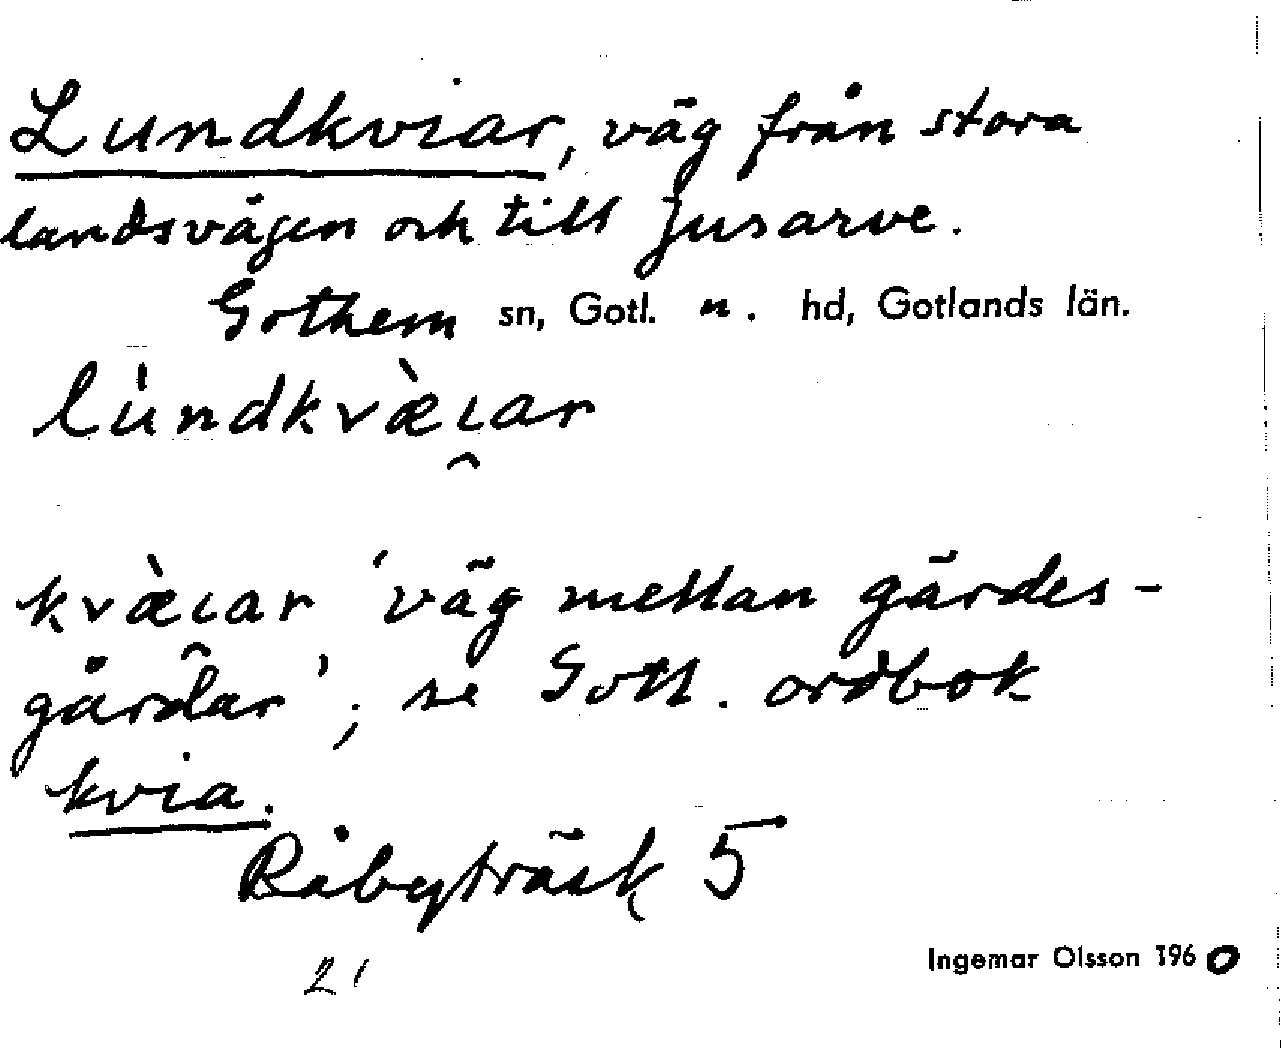 Lundkviar, väg från stora
landsvägen och till Jusarve.
Gothem sn, Gotl. n. hd, Gotlands län.
lùndkvæ̀ı̯ar
kvæ̀ı̯ar 'väg mellan gärdes-
gårdar'; se Gotl. ordbok
kvia.
Råbyträsk 5
21
Ingemar Olsson 1960